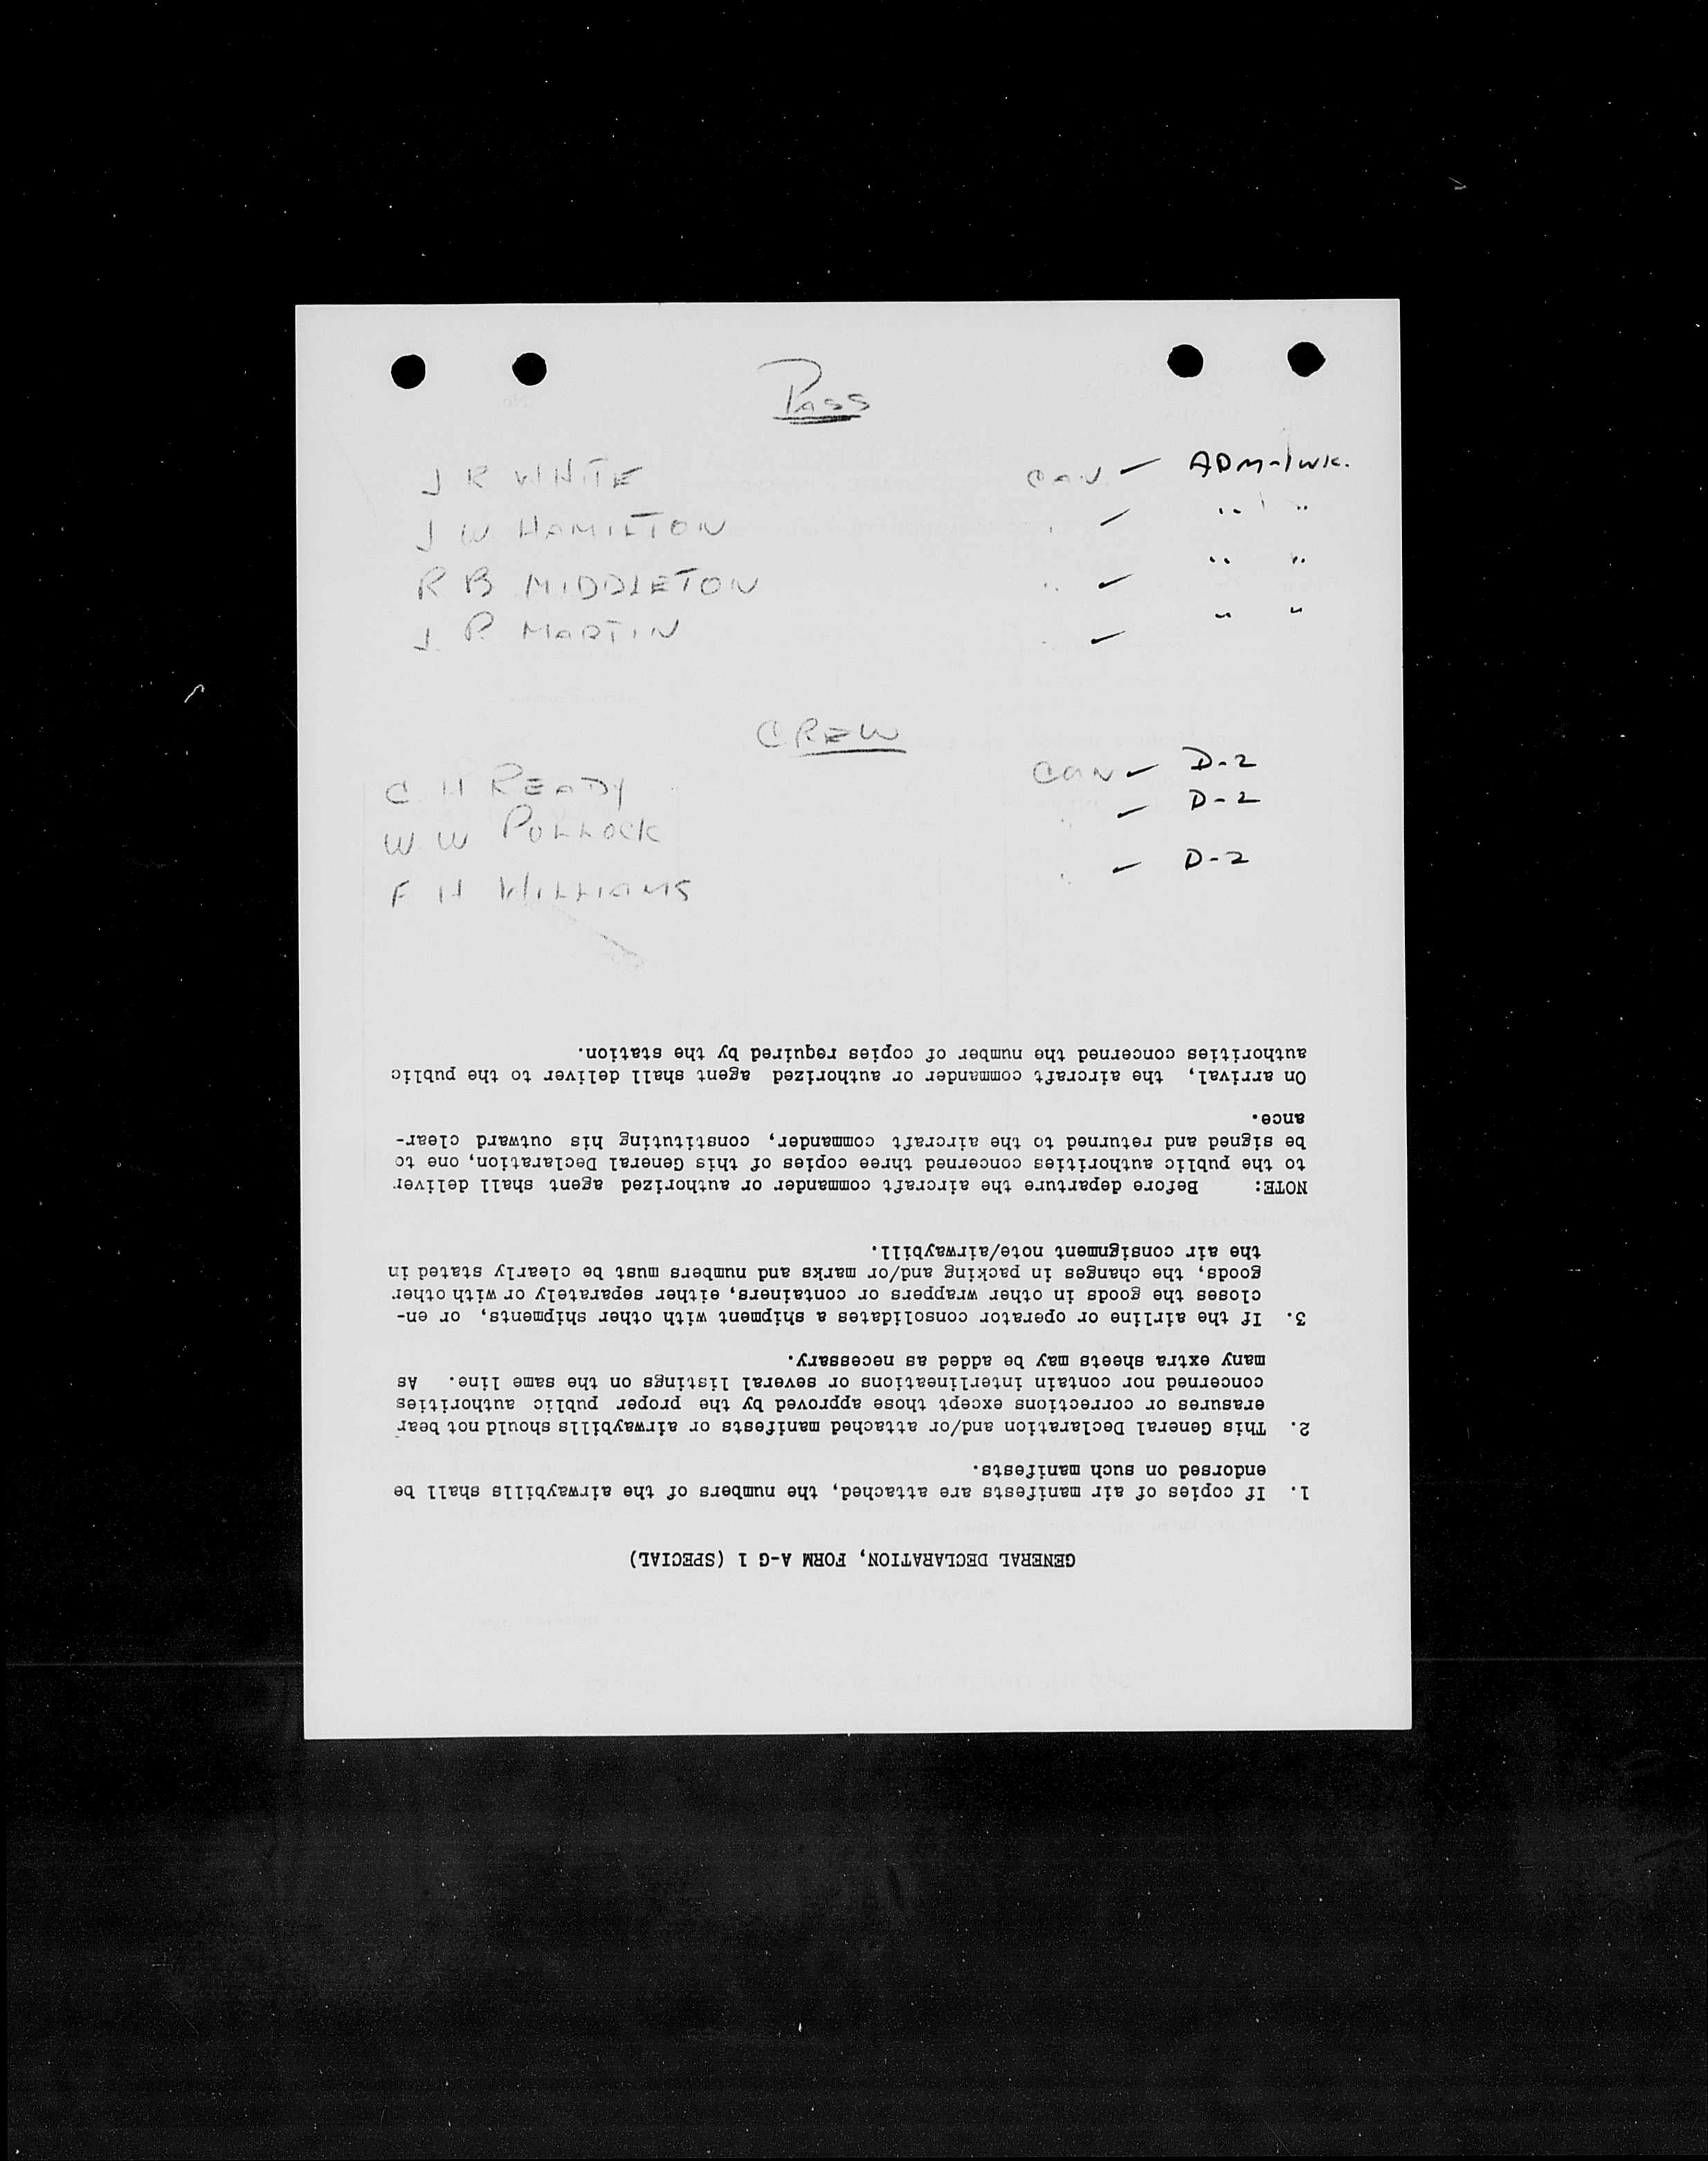 PASS
J R WHITE CAN ✓ ADM-1WK.
J W HAMILTON " ✓ " "
R B MIDDLETON " ✓ " "
J. P. MARTIN " ✓ " "
CREW
C H READY CAN ✓ D-2
W W POLLOCK " ✓ D-2
F H WILLIAMS " ✓ D-2
GENERAL DECLARATION, FORM A-G 1 (SPECIAL)
1. If copies of air manifests are attached, the numbers of the airwaybills shall be
endorsed on such manifests.
2. This General Declaration and/or attached manifests or airwaybills should not bear
erasures or corrections except those approved by the proper public authorities
concerned nor contain interlineations or several listings on the same line. As
many extra sheets may be added as necessary.
3. If the airline or operator consolidates a shipment with other shipments, or en-
closes the goods in other wrappers or containers, either separately or with other
goods, the changes in packing and/or marks and numbers must be clearly stated in
the air consignment note/airwaybill.
NOTE: Before departure the aircraft commander or authorized agent shall deliver
to the public authorities concerned three copies of this General Declaration, one to
be signed and returned to the aircraft commander, constituting his outward clear-
ance.
On arrival, the aircraft commander or authorized agent shall deliver to the public
authorities concerned the number of copies required by the station.